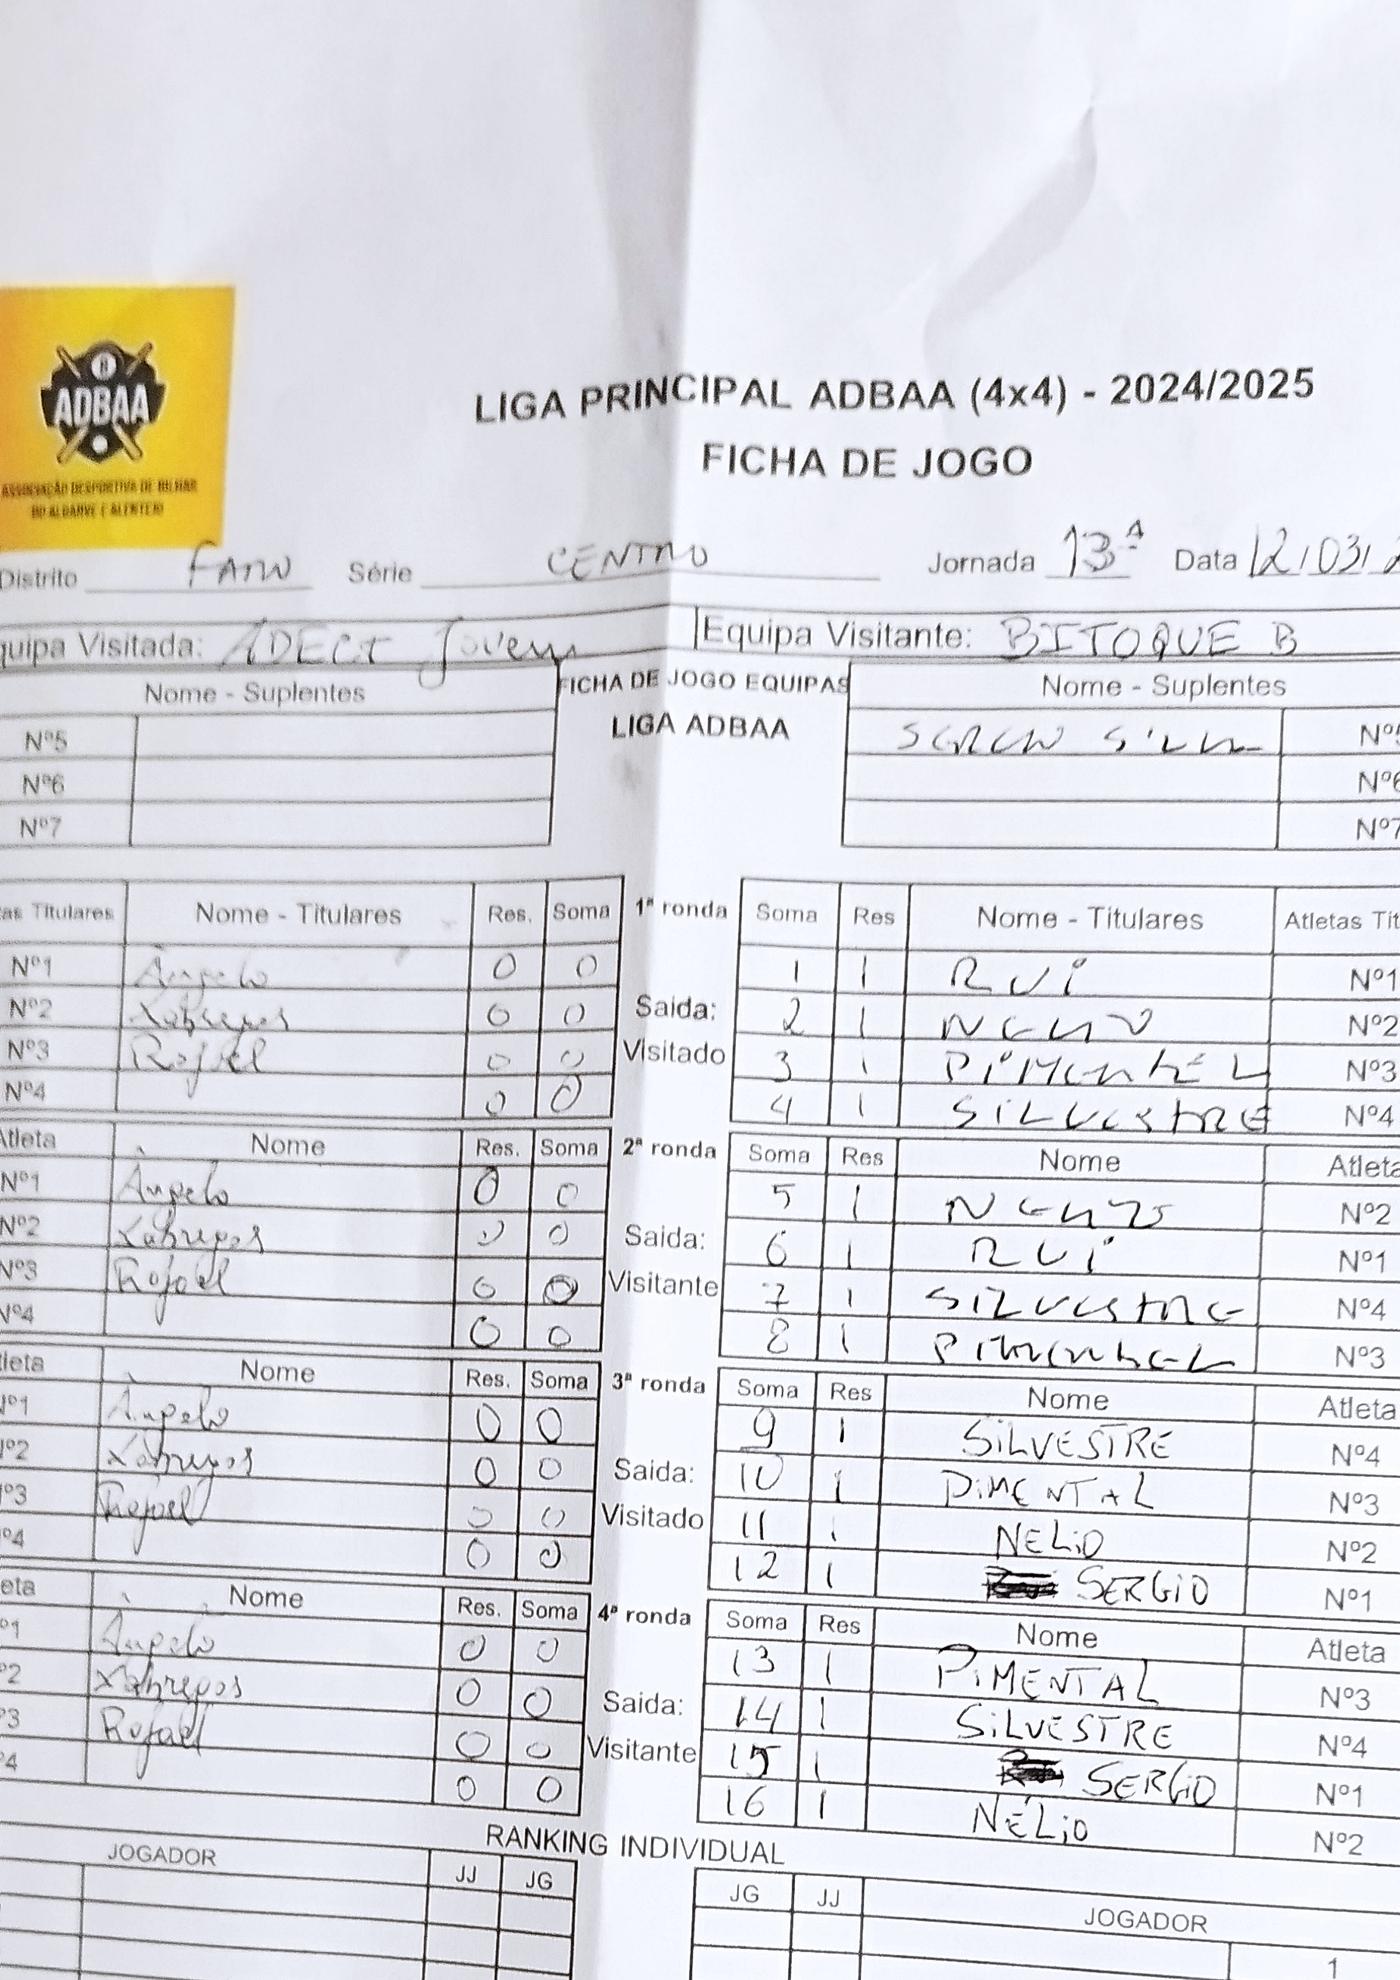 ADBAA
ASSOCIAÇÃO DESPORTIVA DE BILHAR
DO ALGARVE E ALENTEJO
LIGA PRINCIPAL ADBAA (4x4) - 2024/2025
FICHA DE JOGO
Distrito FARO Série CENTRO Jornada 13ª Data 12/03/2
quipa Visitada: ADECT Jovem Equipa Visitante: BITOQUE B
Nome - Suplentes FICHA DE JOGO EQUIPAS Nome - Suplentes
LIGA ADBAA
Nº5 Nº5
Nº6 Nº6
Nº7 Nº7
as Titulares Nome - Titulares Res. Soma 1ª ronda Soma Res Nome - Titulares Atletas Tit
Nº1 Àngelo 0 0 1 1 RUi Nº1
Nº2 Xabregas 0 0 Saida: 2 1 NELIO Nº2
Nº3 Rafael 0 0 Visitado 3 1 PiMENTEL Nº3
Nº4 0 0 4 1 SiLVESTRE Nº4
Atleta Nome Res. Soma 2ª ronda Soma Res Nome Atleta
Nº1 Àngelo 0 0 5 1 NELIO Nº2
Nº2 Xabregas 0 0 Saida: 6 1 RUi Nº1
Nº3 Rafael 0 0 Visitante 7 1 SILVESTRE Nº4
Nº4 0 0 8 1 PiMENTEL Nº3
tleta Nome Res. Soma 3ª ronda Soma Res Nome Atleta
Nº1 Àngelo 0 0 9 1 SiLVESTRE Nº4
º2 Xabregas 0 0 Saida: 10 1 PiMENTAL Nº3
º3 Rafael 0 0 Visitado 11 1 NELiO Nº2
º4 0 0 12 1 SERGiO Nº1
eta Nome Res. Soma 4ª ronda Soma Res Nome Atleta
º1 Àngelo 0 0 13 1 PiMENTAL Nº3
º2 Xabregas 0 0 Saida: 14 1 SiLVESTRE Nº4
º3 Rafael 0 0 Visitante 15 1 SERGiO Nº1
º4 0 0 16 1 NÉLiO Nº2
RANKING INDIVIDUAL
JOGADOR JJ JG JG JJ JOGADOR
1